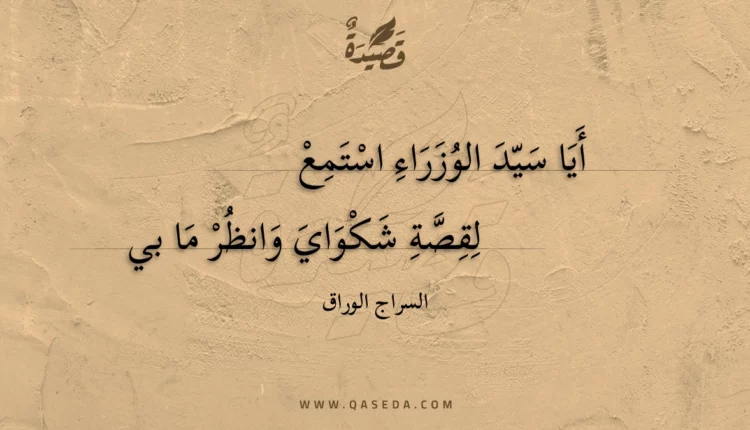 قَصِيدَةٌ
أَيَا سَيّدَ الوُزَرَاءِ اسْتَمِعْ
لِقِصَّةِ شَكْوَايَ وَانظُرْ مَا بي
السراج الوراق
WWW.QASEDA.COM